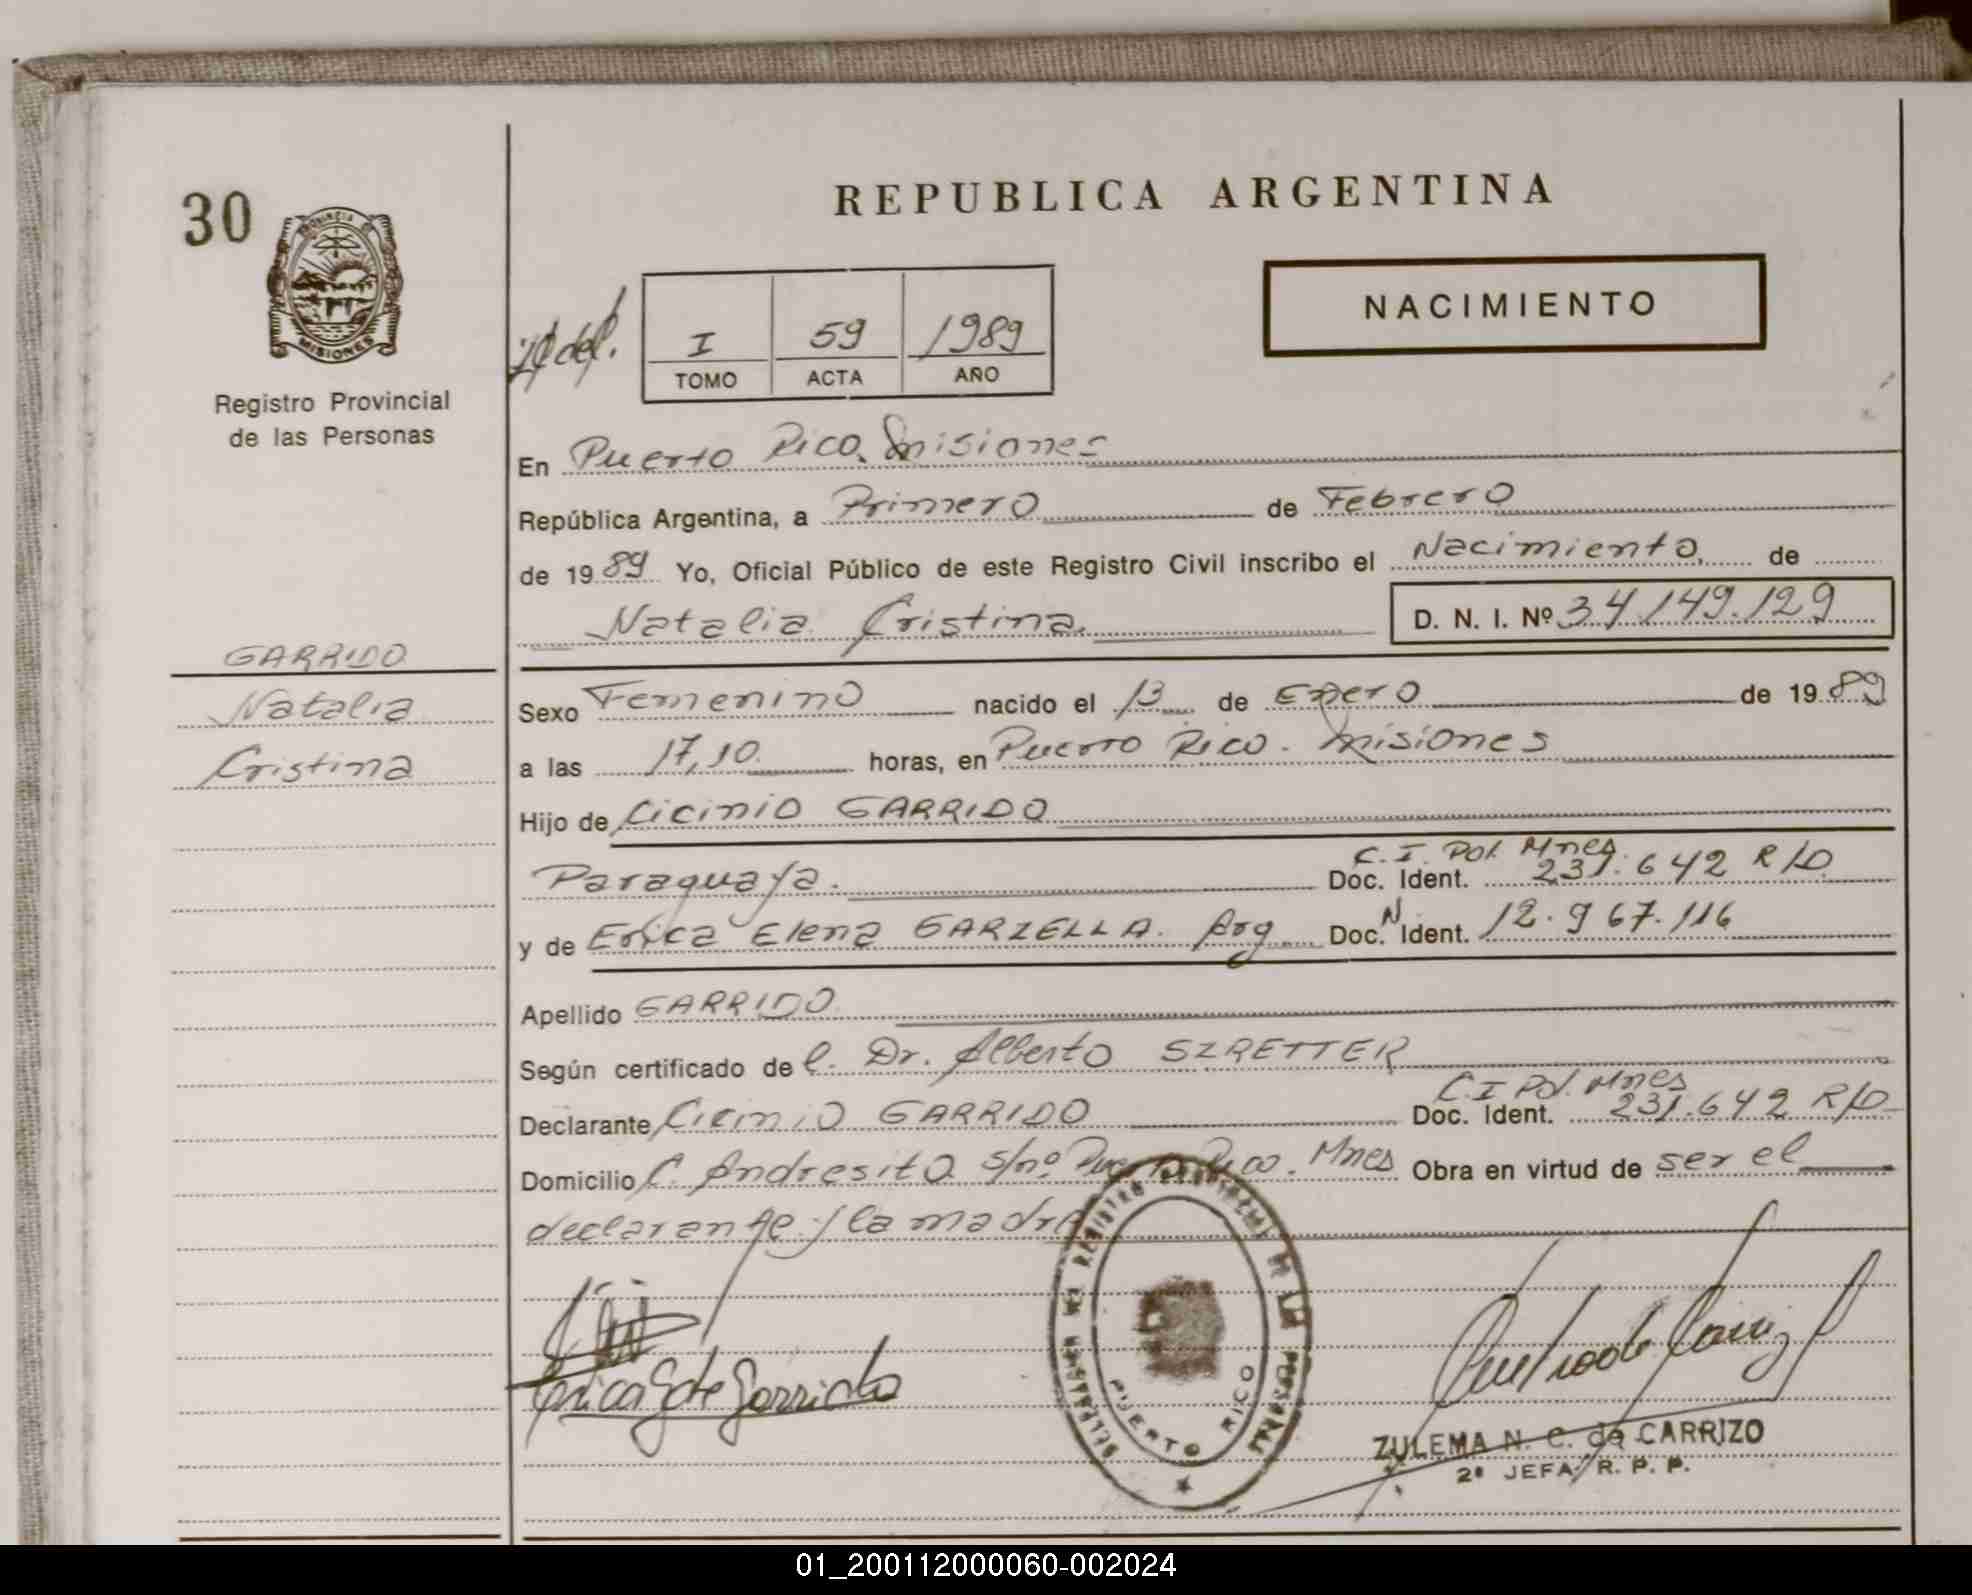 30
PROVINCIA DE
MISIONES
Registro Provincial
de las Personas
GARRIDO
Natalia
Cristina
REPUBLICA ARGENTINA
NACIMIENTO
I 59 1989
TOMO ACTA AÑO
En Puerto Rico. Misiones
República Argentina, a Primero de Febrero
de 1989 Yo, Oficial Público de este Registro Civil inscribo el Nacimiento, de
Natalia Cristina. D. N. I. Nº 34.149.129
Sexo Femenino nacido el 13 de Enero de 1989
a las 17,10. horas, en Puerto Rico. Misiones
Hijo de Cicinio GARRIDO
C. I. Pol. Mnes.
Paraguaya. Doc. Ident. 231.642 R/D
y de Erica Elena GARZELLA. Arg Doc. N Ident. 12.967.116
Apellido GARRIDO
Según certificado del. Dr. Alberto SZRETTER
C. I Pol. Mnes
Declarante Cicinio GARRIDO Doc. Ident. 231.642 R/D
Domicilio C. Andresito s/nº Puerto Rico. Mnes Obra en virtud de ser el
declarante y la madre
Erica G de Garrido
DELEGACION DEL REGISTRO PROVINCIAL DE LAS PERSONAS
PUERTO RICO
ZULEMA N. C. de CARRIZO
2ª JEFA R. P. P.
01_200112000060-002024